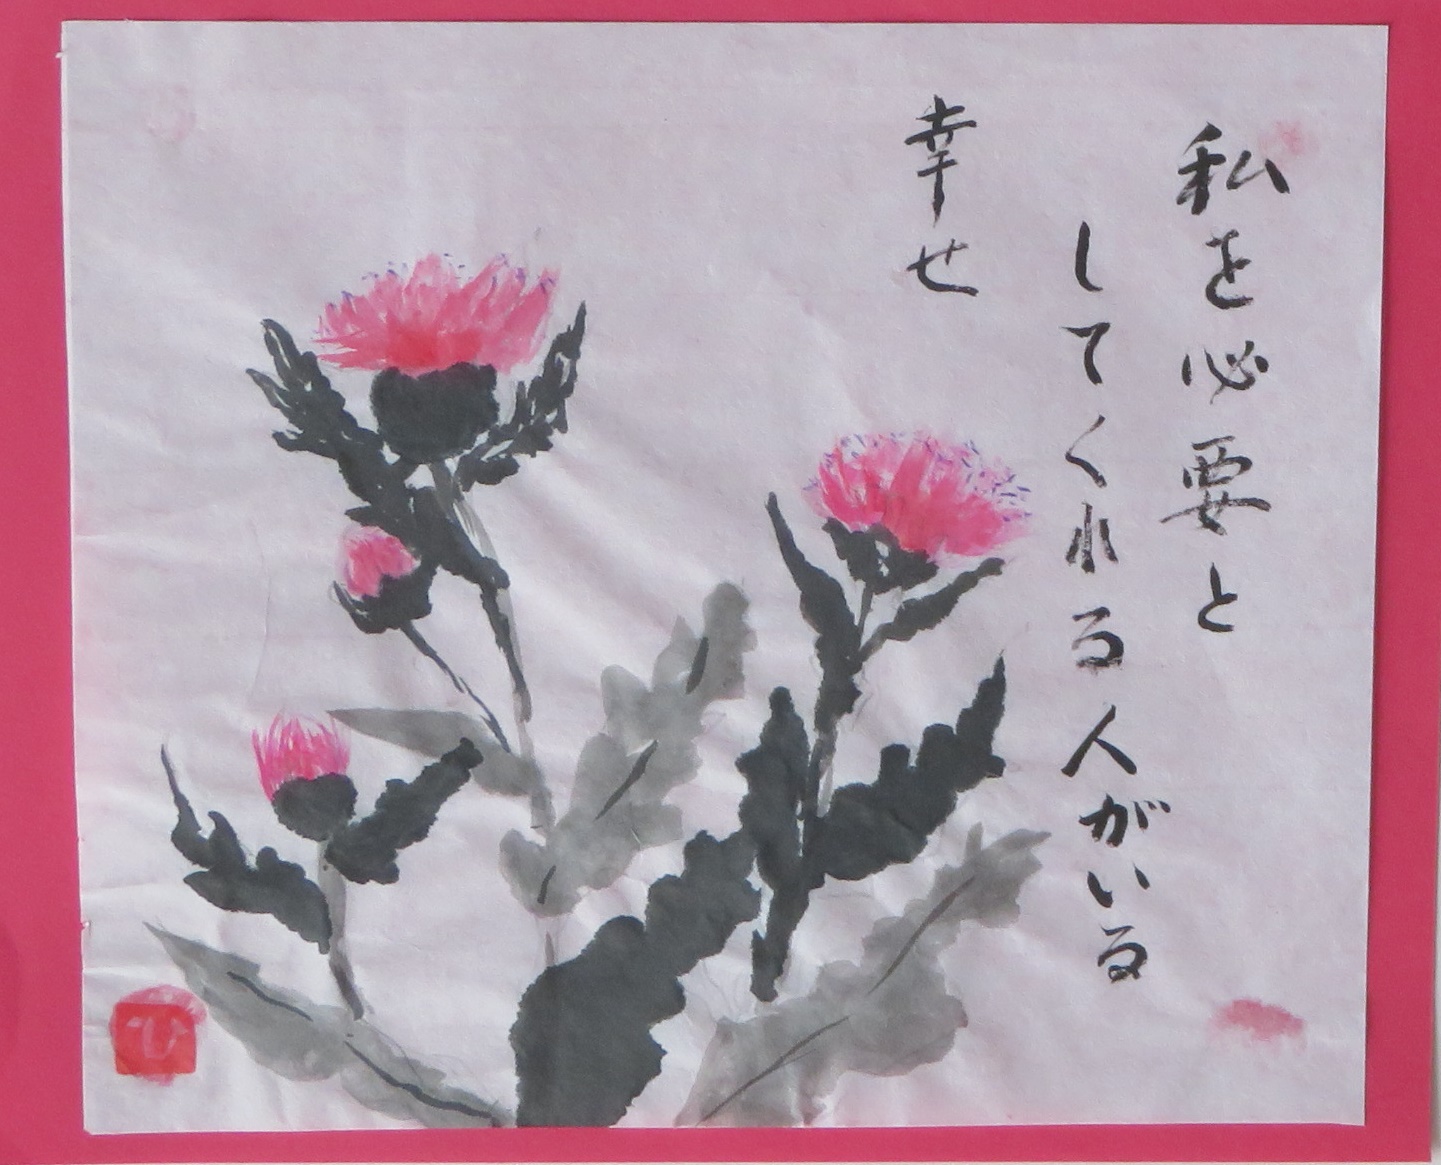 私を必要と
してくれる人がいる
幸せ
ひ